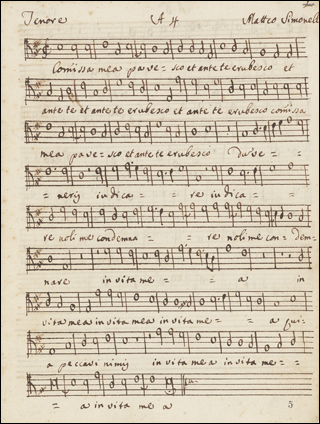 Tenore A 4 Matteo Simonell
Comissa mea pave = sco et ante te erubesco et
ante te et ante te erubesco et ante te erubesco comissa
mea pave = sco et ante te erubesco Du ve =
= neris iudica = = re iudica = =
re noli me condemna = = = re noli me con = dem =
nare in vita me = = a in
vita mea in vita mea in vita me = = a qui =
a peccavi nimis in vita mea in vita me = =
= a in vita mea
5